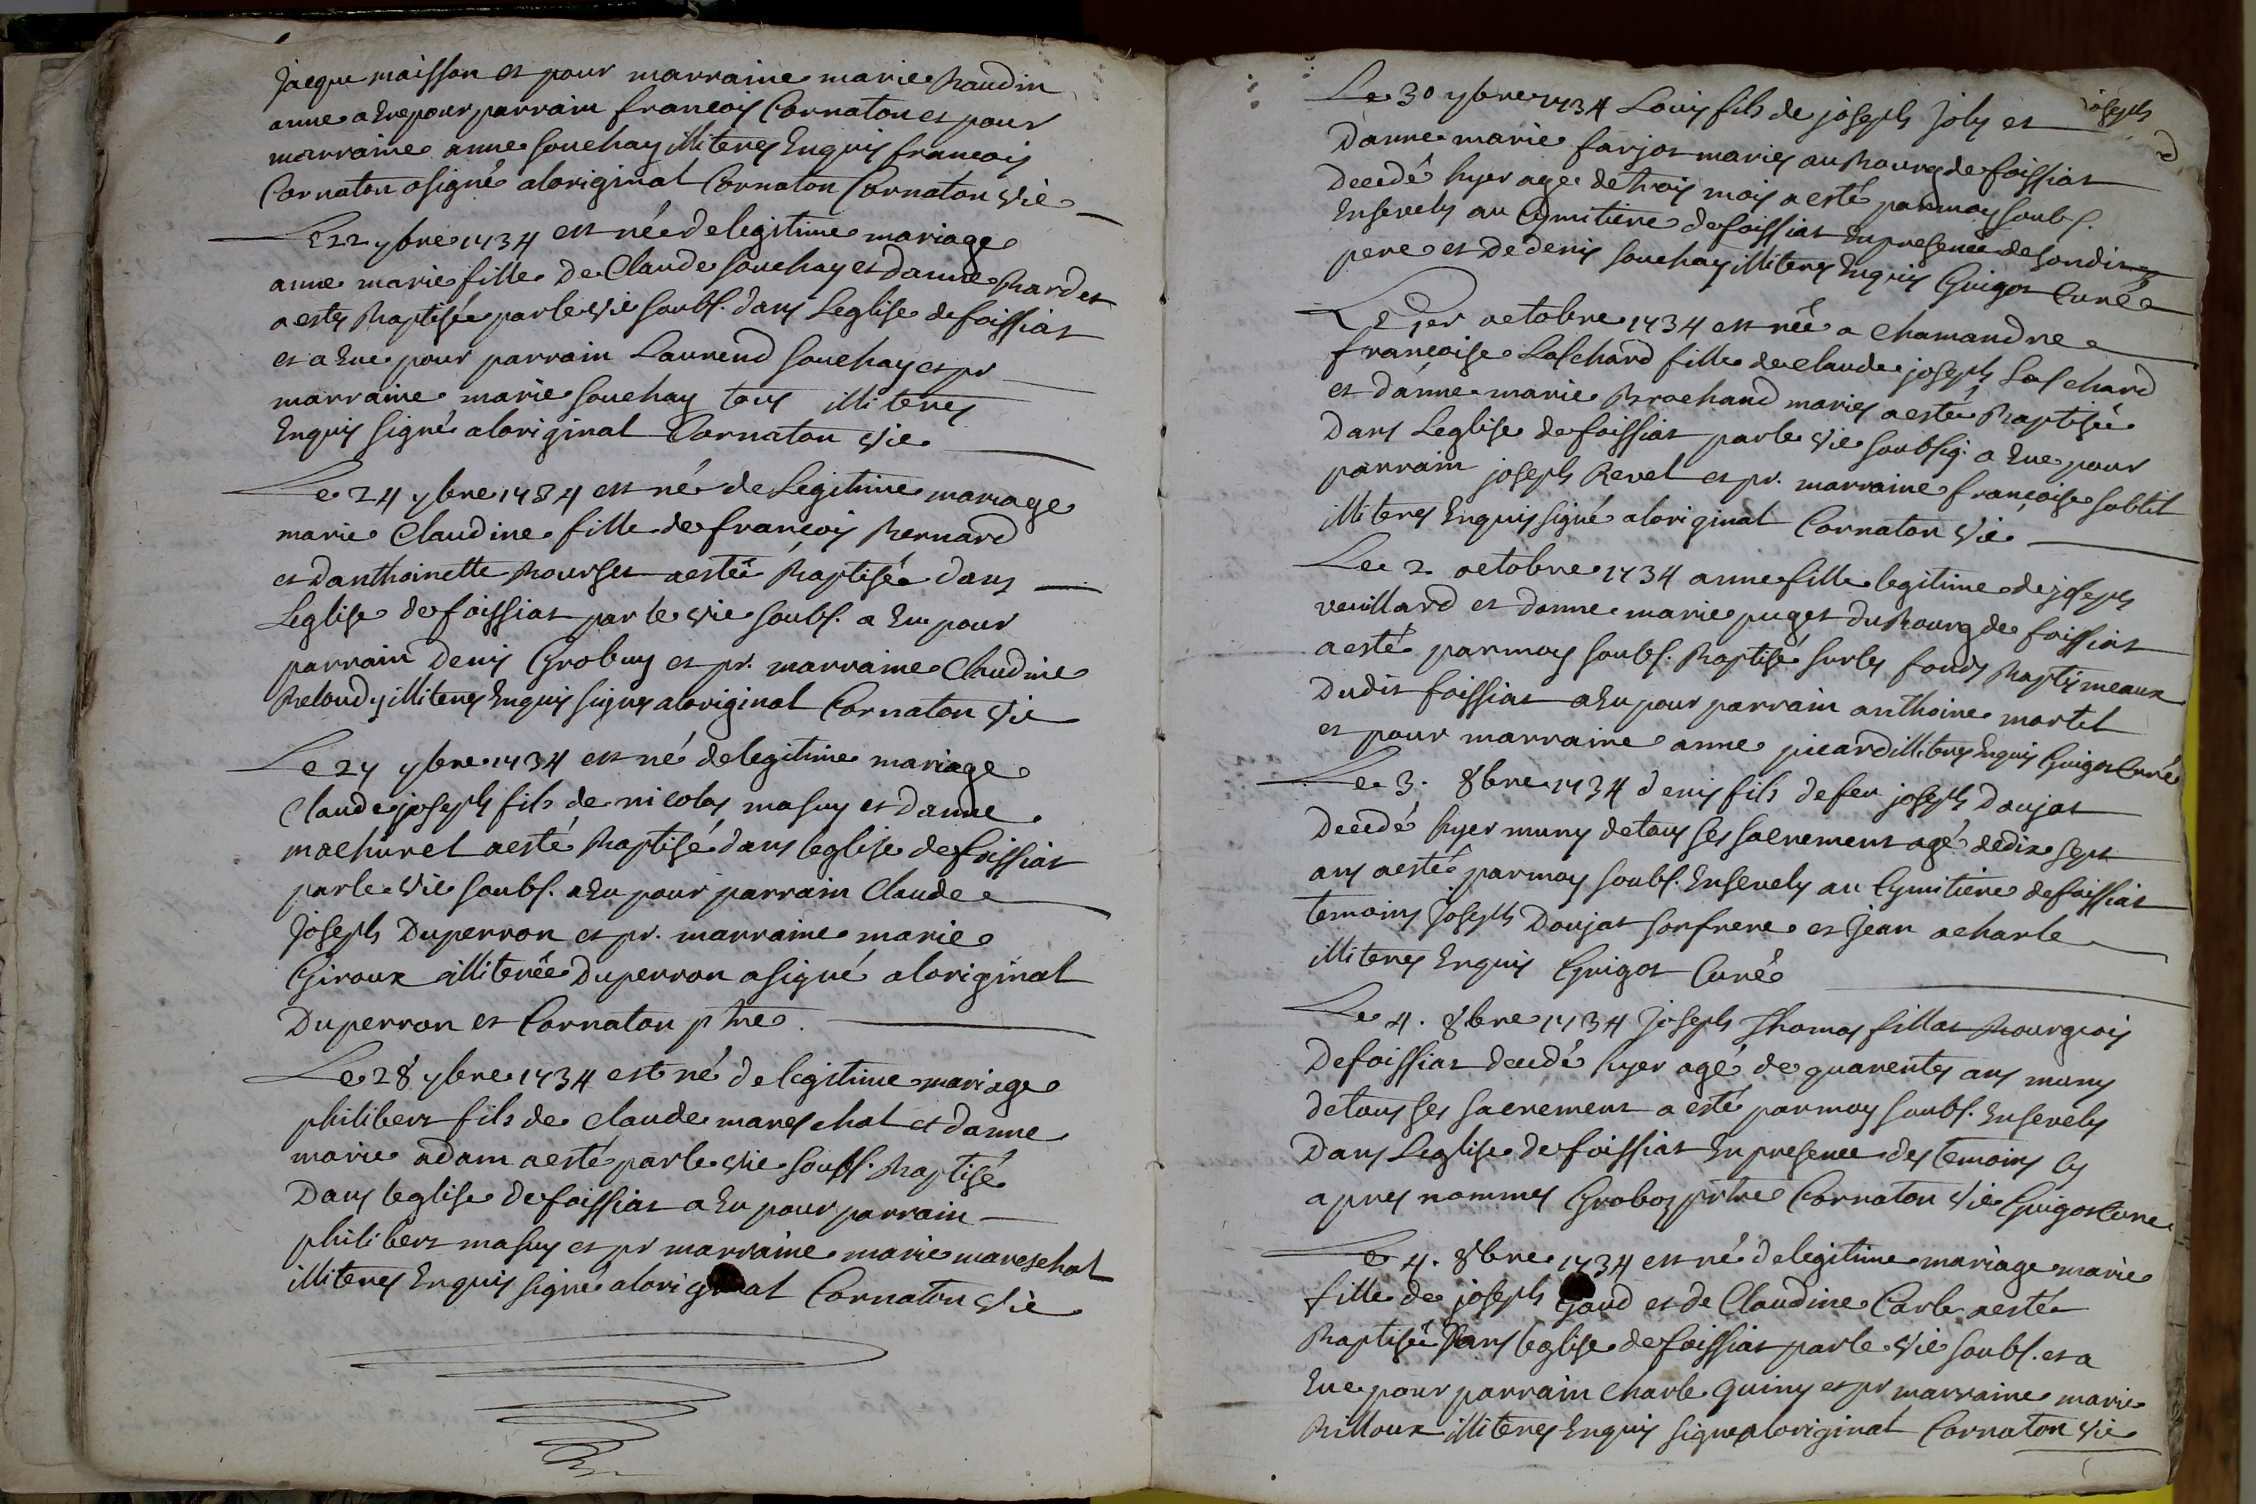 Jacque maisson et pour marraine marie Baudin
anne a Eue pour parrain francois Cornaton et pour
marraine anne souchay illiterez Enquis francois
Cornaton a signé aloriginal Cornaton Cornaton vie
Le 22 7bre 1734 est née de legitime mariage
anne marie fille de Claude souchay et danne Bardet
a estez Baptisée par le vie soubs. dans Leglise de foissiat
et a Eue pour parrain Laurend souchay et pr
marraine marie souchay tous illiterez
Enquis signé aloriginal Cornaton vie
Le 24 7bre 1734 est né de Legitime mariage
marie Claudine fille de françois Bernard
et danthoinette Bourset a estée Baptisée dans
Leglise de foissiat par le vie soubs. a Eu pour
parrain Denis Grobuy et pr. marraine Claudine
Beloudy illiterez Enquis signez aloriginal Cornaton vie
Le 27 7bre 1734 est né de legitime mariage
Claude joseph fils de nicolas masuy et danne
machurel a esté Baptisé dans leglise de foissiat
par le vie soubs. a Eu pour parrain Claude
Joseph Duperron et pr. marraine marie
Giroux illiterée Duperron a signé a loriginal
Duperron et Cornaton ptre.
Le 28 7bre 1734 est né de legitime mariage
philibert fils de Claude mareschal et danne
marie adam a esté par le vie soubs. Baptisé
Dans leglise de foissiat a Eu pour parrain
philibert masuy et pr marraine marie mareschal
illiterez Enquis signé aloriginal Cornaton vie
Le 30 7bre 1734 Louis fils de joseph Joly et joseph
Danne marie farjot mariez au Bourg de foissiat
Decedé hyer age de trois mois a esté par moy soubs.
Ensevely au Cymitiere de foissiat En presence de sondit
pere et de denis souchay illiterez Enquis Guigot Curé
Le 1er octobre 1734 est née a Chamandre
françoise Laschard fille de Claude joseph Laschard
et danne marie Brochand mariez a esté Baptisée
Dans Leglise de foissiat par le vie soubsig. a Eue pour
parrain joseph Revel et pr. marraine françoise sobtil
illiterez Enquis signé aloriginal Cornaton vie
Le 2 octobre 1734 anne fille legitime de joseph
veuillard et danne marie puget du Bourg de foissiat
a esté par moy soubs. Baptisé sur les fonds Baptismeaux
Dudit foissiat a Eu pour parrain anthoine martel
et pour marraine anne picard illiterez Enquis Guigot Curé
Le 3. 8bre 1734 denis fils de feu joseph Doujat
Decedé hyer muny de tous ses sacrement agé de dix sept
ans a esté par moy soubs. Ensevely au Cymitiere de foissiat
temoins Joseph Doujat son frere et Jean acharle
illiterez Enquis Guigot Curé
Le 4. 8bre 1734 Joseph Thomas fillat Bourgeois
De foissiat decedé hyer agé de quarente ans muny
de tous ses sacrement a esté par moy soubs. Ensevely
Dans Leglise de foissiat En presence des temoins cy
apres nommez Groboz prtre Cornaton vie Guigot Curé
Le 4. 8bre 1734 est né de legitime mariage marie
fille de joseph Gaud et de Claudine Carle a esté
Baptisée Dans leglise de foissiat par le vie soubs. et a
Eue pour parrain Charle Guiny et pr marraine marie
Billoux illiterez Enquis signez aloriginal Cornaton vie